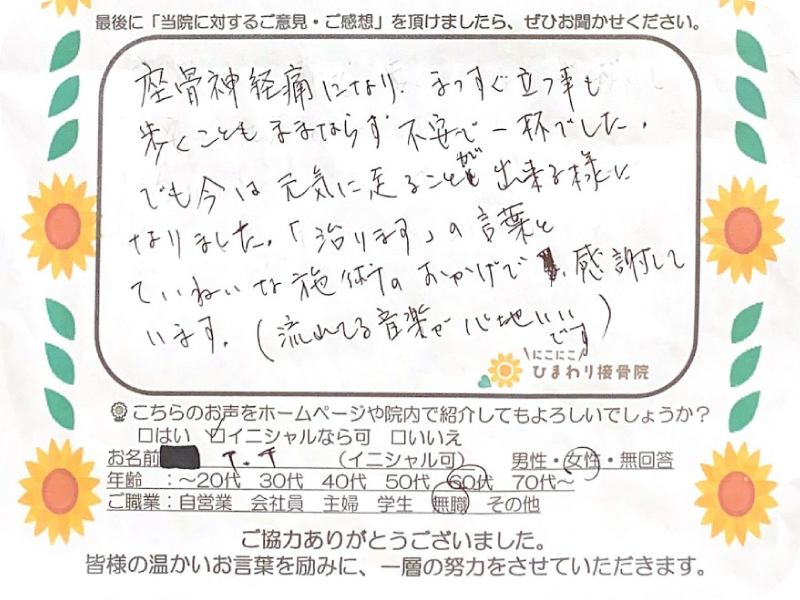 最後に「当院に対するご意見・ご感想」を頂けましたら、ぜひお聞かせください。
座骨神経痛になり、まっすぐ立つ事も
歩くこともままならず不安で一杯でした。
でも今は元気に走ることが出来る様に
なりました。「治ります」の言葉と
ていねいな施術のおかげで、感謝して
います。(流れてる音楽が心地いいです)
\にこにこ/
ひまわり接骨院
こちらのお声をホームページや院内で紹介してもよろしいでしょうか?
□はい ☑イニシャルなら可 □いいえ
お名前 T.T (イニシャル可) 男性・女性・無回答
年齢 :〜20代 30代 40代 50代 60代 70代〜
ご職業:自営業 会社員 主婦 学生 無職 その他
ご協力ありがとうございました。
皆様の温かいお言葉を励みに、一層の努力をさせていただきます。